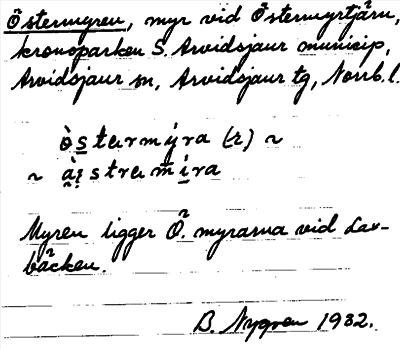 Östermyren, myr vid Östermyrtjärn,
kronoparken S. Arvidsjaur municip,
Arvidsjaur sn, Arvidsjaur tg, Norrb. l.
òstərmýra (r) ~
~ àistrəmira
Myren ligger Ö. myrarna vid Lav-
bäcken.
B. Nygren 1932.